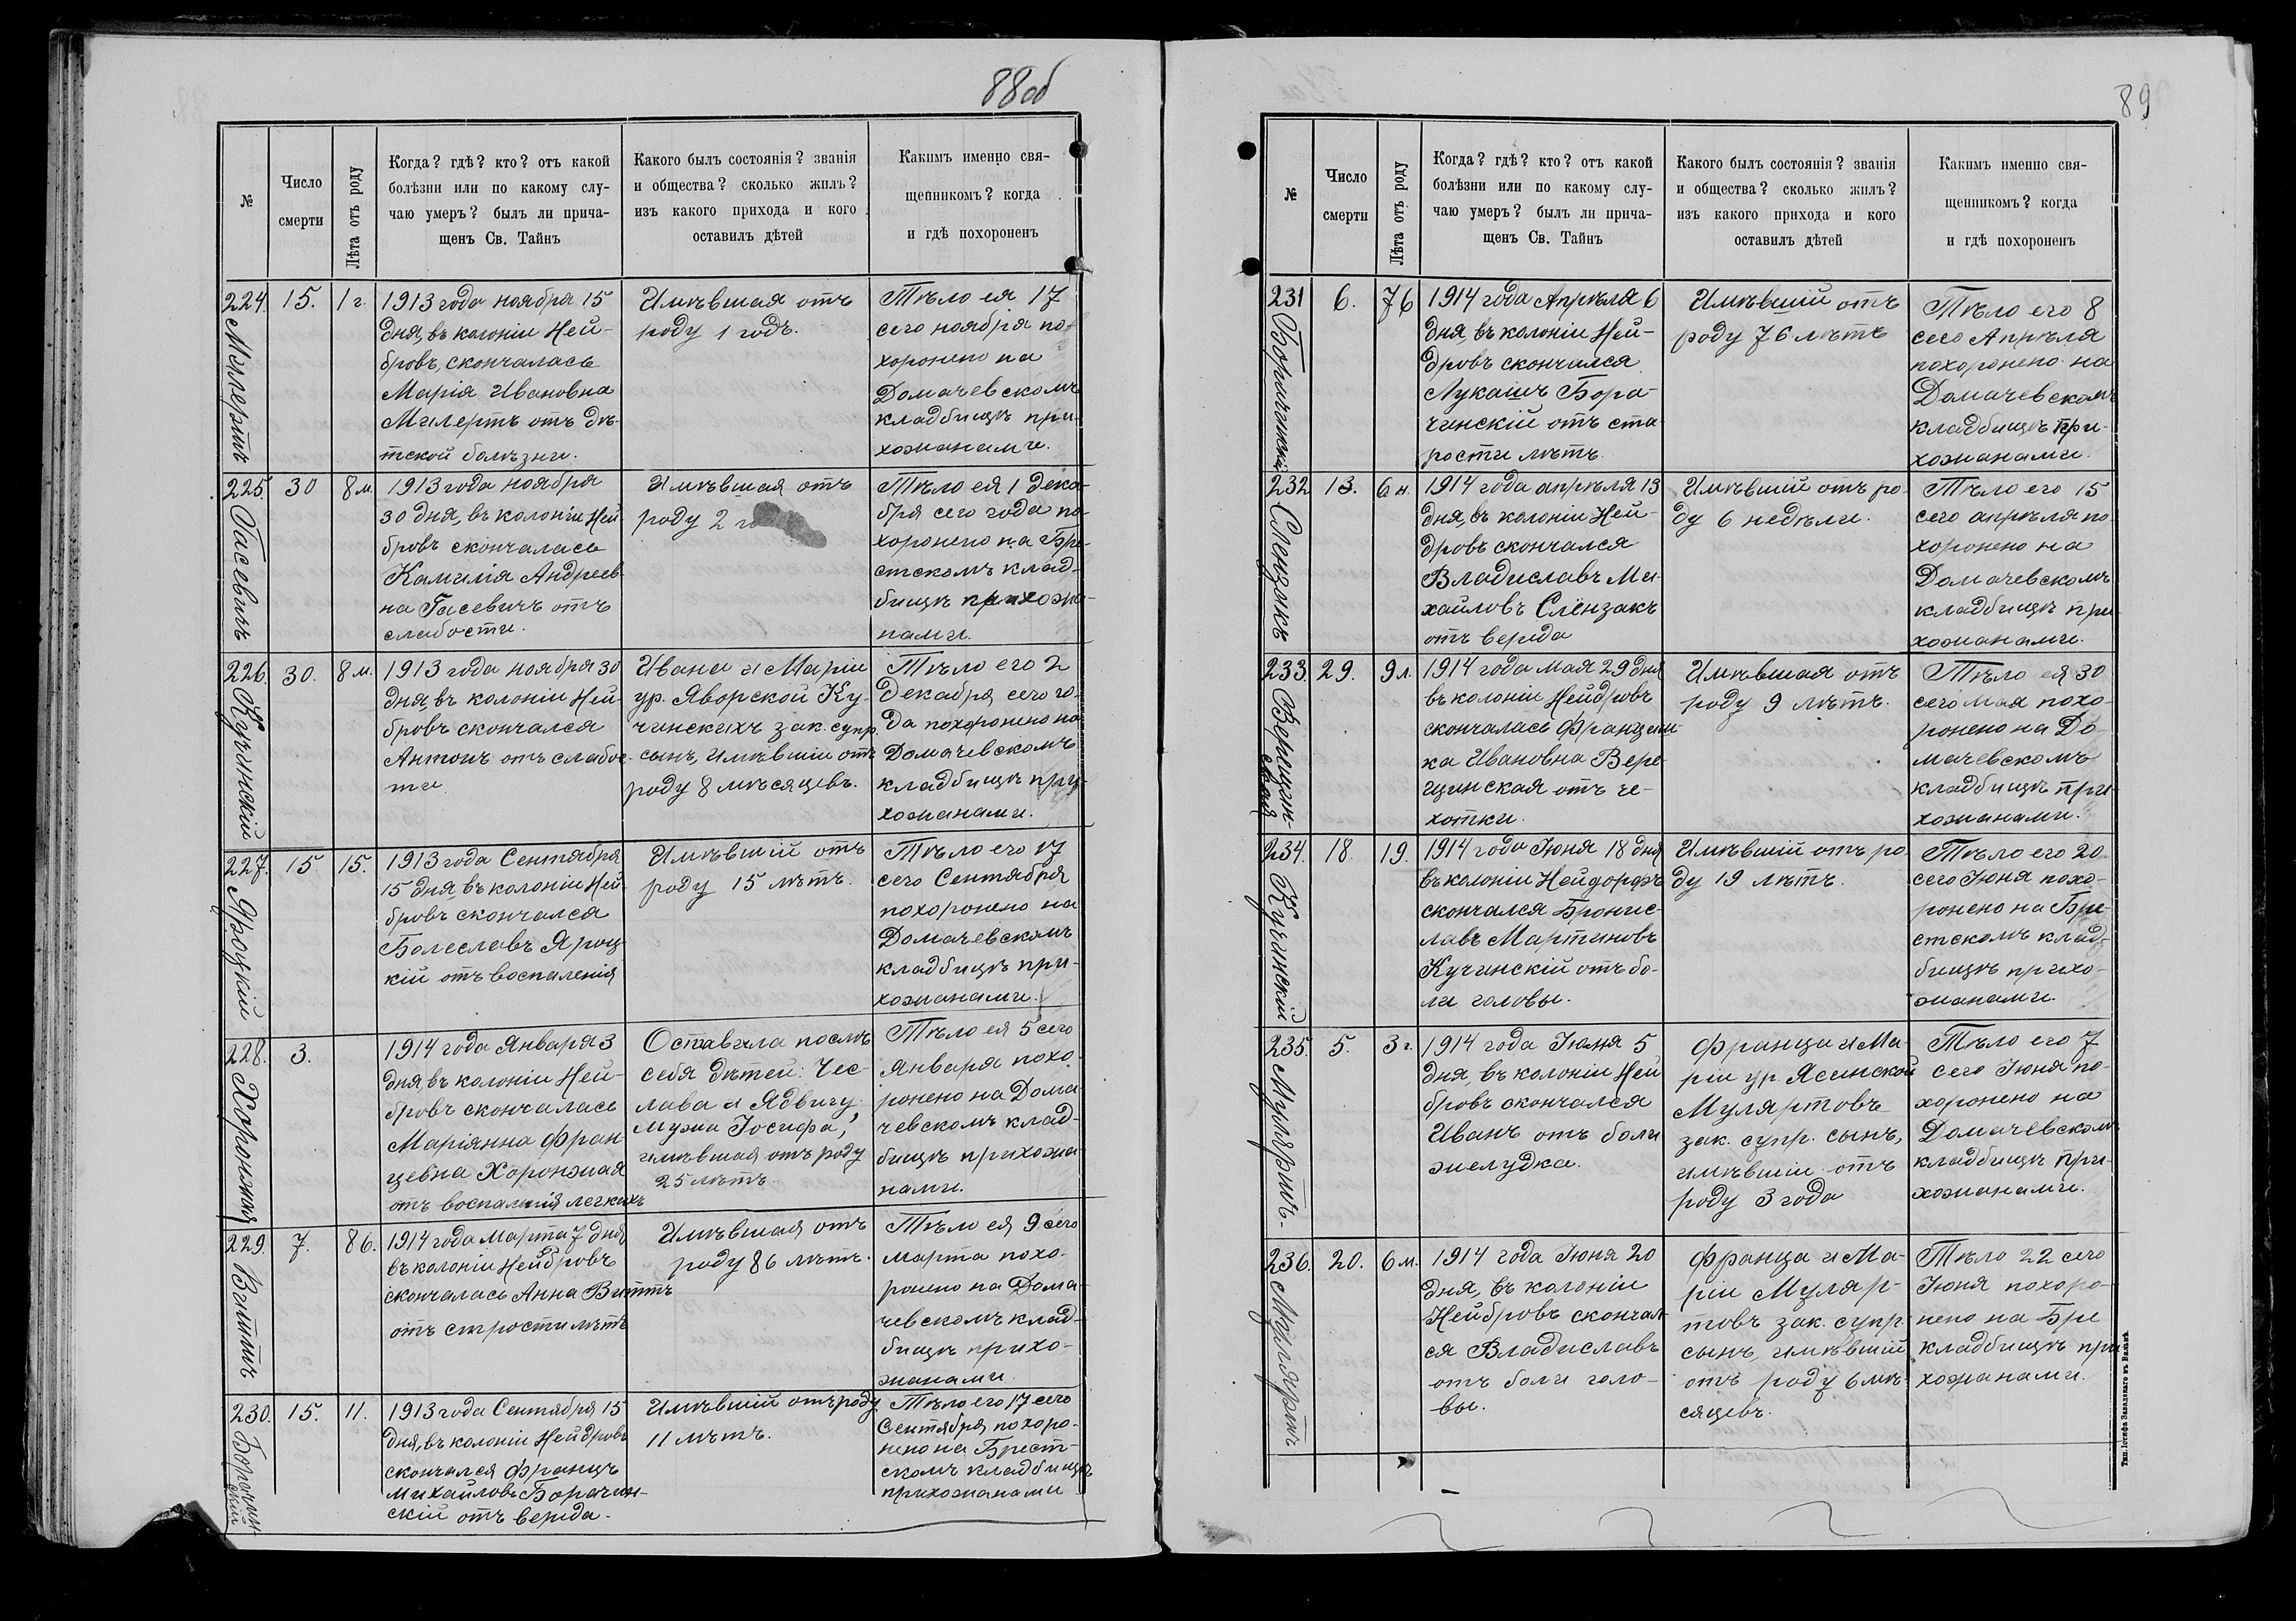 88об
№
Число
смерти
Лѣта отъ роду
Когда? гдѣ? кто? отъ какой
болѣзни или по какому слу-
чаю умеръ? былъ ли прича-
щенъ Св. Тайнъ
Какого былъ состоянія? званія
и общества? сколько жилъ?
изъ какого прихода и кого
оставилъ дѣтей
Какимъ именно свя-
щенникомъ? когда
и гдѣ похороненъ
224.
Миллертъ
15.
1 г.
1913 года ноября 15
дня, въ колоніи Ней-
бровъ, скончалась
Марія Ивановна
Милертъ отъ дѣ-
тской болѣзни.
Имѣвшая отъ
роду 1 годъ.
Тѣло ея 17
сего ноября по-
хоронено на
Домачевскомъ
кладбищѣ при-
хожанами.
225.
Гасевичъ
30
8 м.
1913 года ноября
30 дня, въ колоніи Ней
бровъ скончалась
Камилія Андреев-
на Гасевичъ отъ
слабости.
Имѣвшая отъ
роду 2 го
Тѣло ея 1 дека-
бря сего года по-
хоронено на Бре-
стскомъ клад-
бищѣ прихожа-
нами.
226.
Кучинскій
30.
8 м.
1913 года ноября 30
дня, въ колоніи Ней-
бровъ скончался
Антонъ отъ слабос-
ти
Ивана и Маріи
ур. Яворской Ку-
чинскихъ зак. супр.
сынъ, имѣвшій отъ
роду 8 мѣсяцевъ.
Тѣло его 2
декабря сего го-
да похоронено на
Домачевскомъ
кладбищѣ при-
хожанами.
227.
Яроцкій
15
15.
1913 года Сентября
15 дня въ колоніи Ней
бровъ скончался
Болеславъ Яроц-
кій отъ воспаленія
Имѣвшій отъ
роду 15 лѣтъ.
Тѣло его 17
сего Сентября
похоронено на
Домачевскомъ
кладбищѣ при-
хожанами.
228.
Хоронжая
3.
1914 года Января 3
дня въ колоніи Ней-
бровъ скончалась
Маріянна Фран-
цевна Хоронжая
отъ воспаленія легкихъ
Оставила послѣ
себя дѣтей: Чес-
лава и Ядвигу.
Мужа Іосифа,
имѣвшая отъ роду
25 лѣтъ.
Тѣло ея 5 сего
Января похо-
ронено на Дома-
чевскомъ клад-
бищѣ прихожа-
нами.
229.
Виттъ
7.
86.
1914 года Марта 7 дня
въ колоніи Нейбровъ
скончалась Анна Виттъ
отъ старости лѣтъ
Имѣвшая отъ
роду 86 лѣтъ.
Тѣло ея 9 сего
марта похо-
ронено на Дома-
чевскомъ клад-
бищѣ прихо-
жанами.
230.
Борачин-
скій
15.
11.
1913 года Сентября 15
дня, въ колоніи Нейдровъ
скончался Францъ
Михайловъ Борачин-
скій отъ вереда.
Имѣвшій отъ роду
11 лѣтъ.
Тѣло его 17 сего
Сентября похоро-
нено на Брест-
скомъ кладбищѣ
прихожанами
89
№
Число
смерти
Лѣта отъ роду
Когда? гдѣ? кто? отъ какой
болѣзни или по какому слу-
чаю умеръ? былъ ли прича-
щенъ Св. Тайнъ
Какого былъ состоянія? званія
и общества? сколько жилъ?
изъ какого прихода и кого
оставилъ дѣтей
Какимъ именно свя-
щенникомъ? когда
и гдѣ похороненъ
231
Борачинскій
6.
76
1914 года Апрѣля 6
дня, въ колоніи Ней-
дровъ скончался
Лукашъ Бора-
чинскій отъ ста-
рости лѣтъ.
Имѣвшій отъ
роду 76 лѣтъ
Тѣло его 8
сего Апрѣля
похоронено на
Домачевскомъ
кладбищѣ при-
хожанами.
232
Слензакъ
13.
6 н.
1914 года апрѣля 13
дня, въ колоніи Ней-
дровъ скончался
Владиславъ Ми-
хайловъ Слензакъ
отъ вереда
Имѣвшій отъ ро-
ду 6 недѣли.
Тѣло его 15
сего апрѣля по-
хоронено на
Домачевскомъ
кладбищѣ при-
хожанами.
233.
Верещин-
ская
29.
9 л.
1914 года мая 29 дня
въ колоніи Нейдровъ
скончалась Франциш-
ка Ивановна Вере-
щинская отъ че-
хотки.
Имѣвшая отъ
роду 9 лѣтъ.
Тѣло ея 30
сего мая похо-
ронено на До-
мачевскомъ
кладбищѣ при-
хожанами.
234.
Кучинскій
18.
19.
1914 года Іюня 18 дня
въ колоніи Нейдорфъ
скончался Бронис-
лавъ Мартиновъ
Кучинскій отъ бо-
ли головы.
Имѣвшій отъ ро-
ду 19 лѣтъ.
Тѣло его 20
сего Іюня похо-
ронено на Бре-
стскомъ клад-
бищѣ прихо-
жанами.
235.
Мулярттъ.
5.
3 г.
1914 года Іюня 5
дня, въ колоніи Ней
бровъ скончался
Иванъ отъ боли
желудка.
Франца и Ма-
ріи ур. Ясинской
Мулярттовъ
зак. супр. сынъ,
имѣвшій отъ
роду 3 года
Тѣло его 7
сего Іюня по-
хоронено на
Домачевскомъ
кладбищѣ при-
хожанами.
236.
Мулярртъ
20.
6 м.
1914 года Іюня 20
дня, въ колоніи
Нейбровъ скончал-
ся Владиславъ
отъ боли голо-
вы.
Франца и Ма-
ріи Муляр-
товъ зак. супр.
сынъ, имѣвшій
отъ роду 6 мѣ-
сяцевъ.
Тѣло 22 сего
Іюня похоро-
нено на Бре
кладбищѣ при
хожанами.
Тип. Іосифа Завадзкаго въ Вильнѣ.